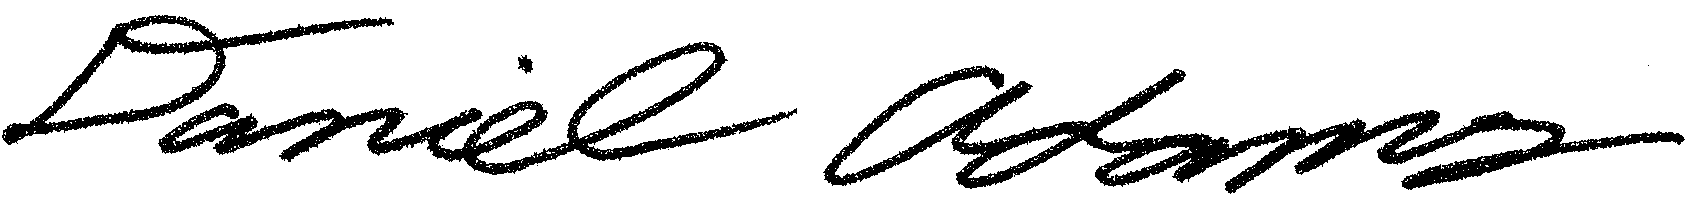 Daniel Adams